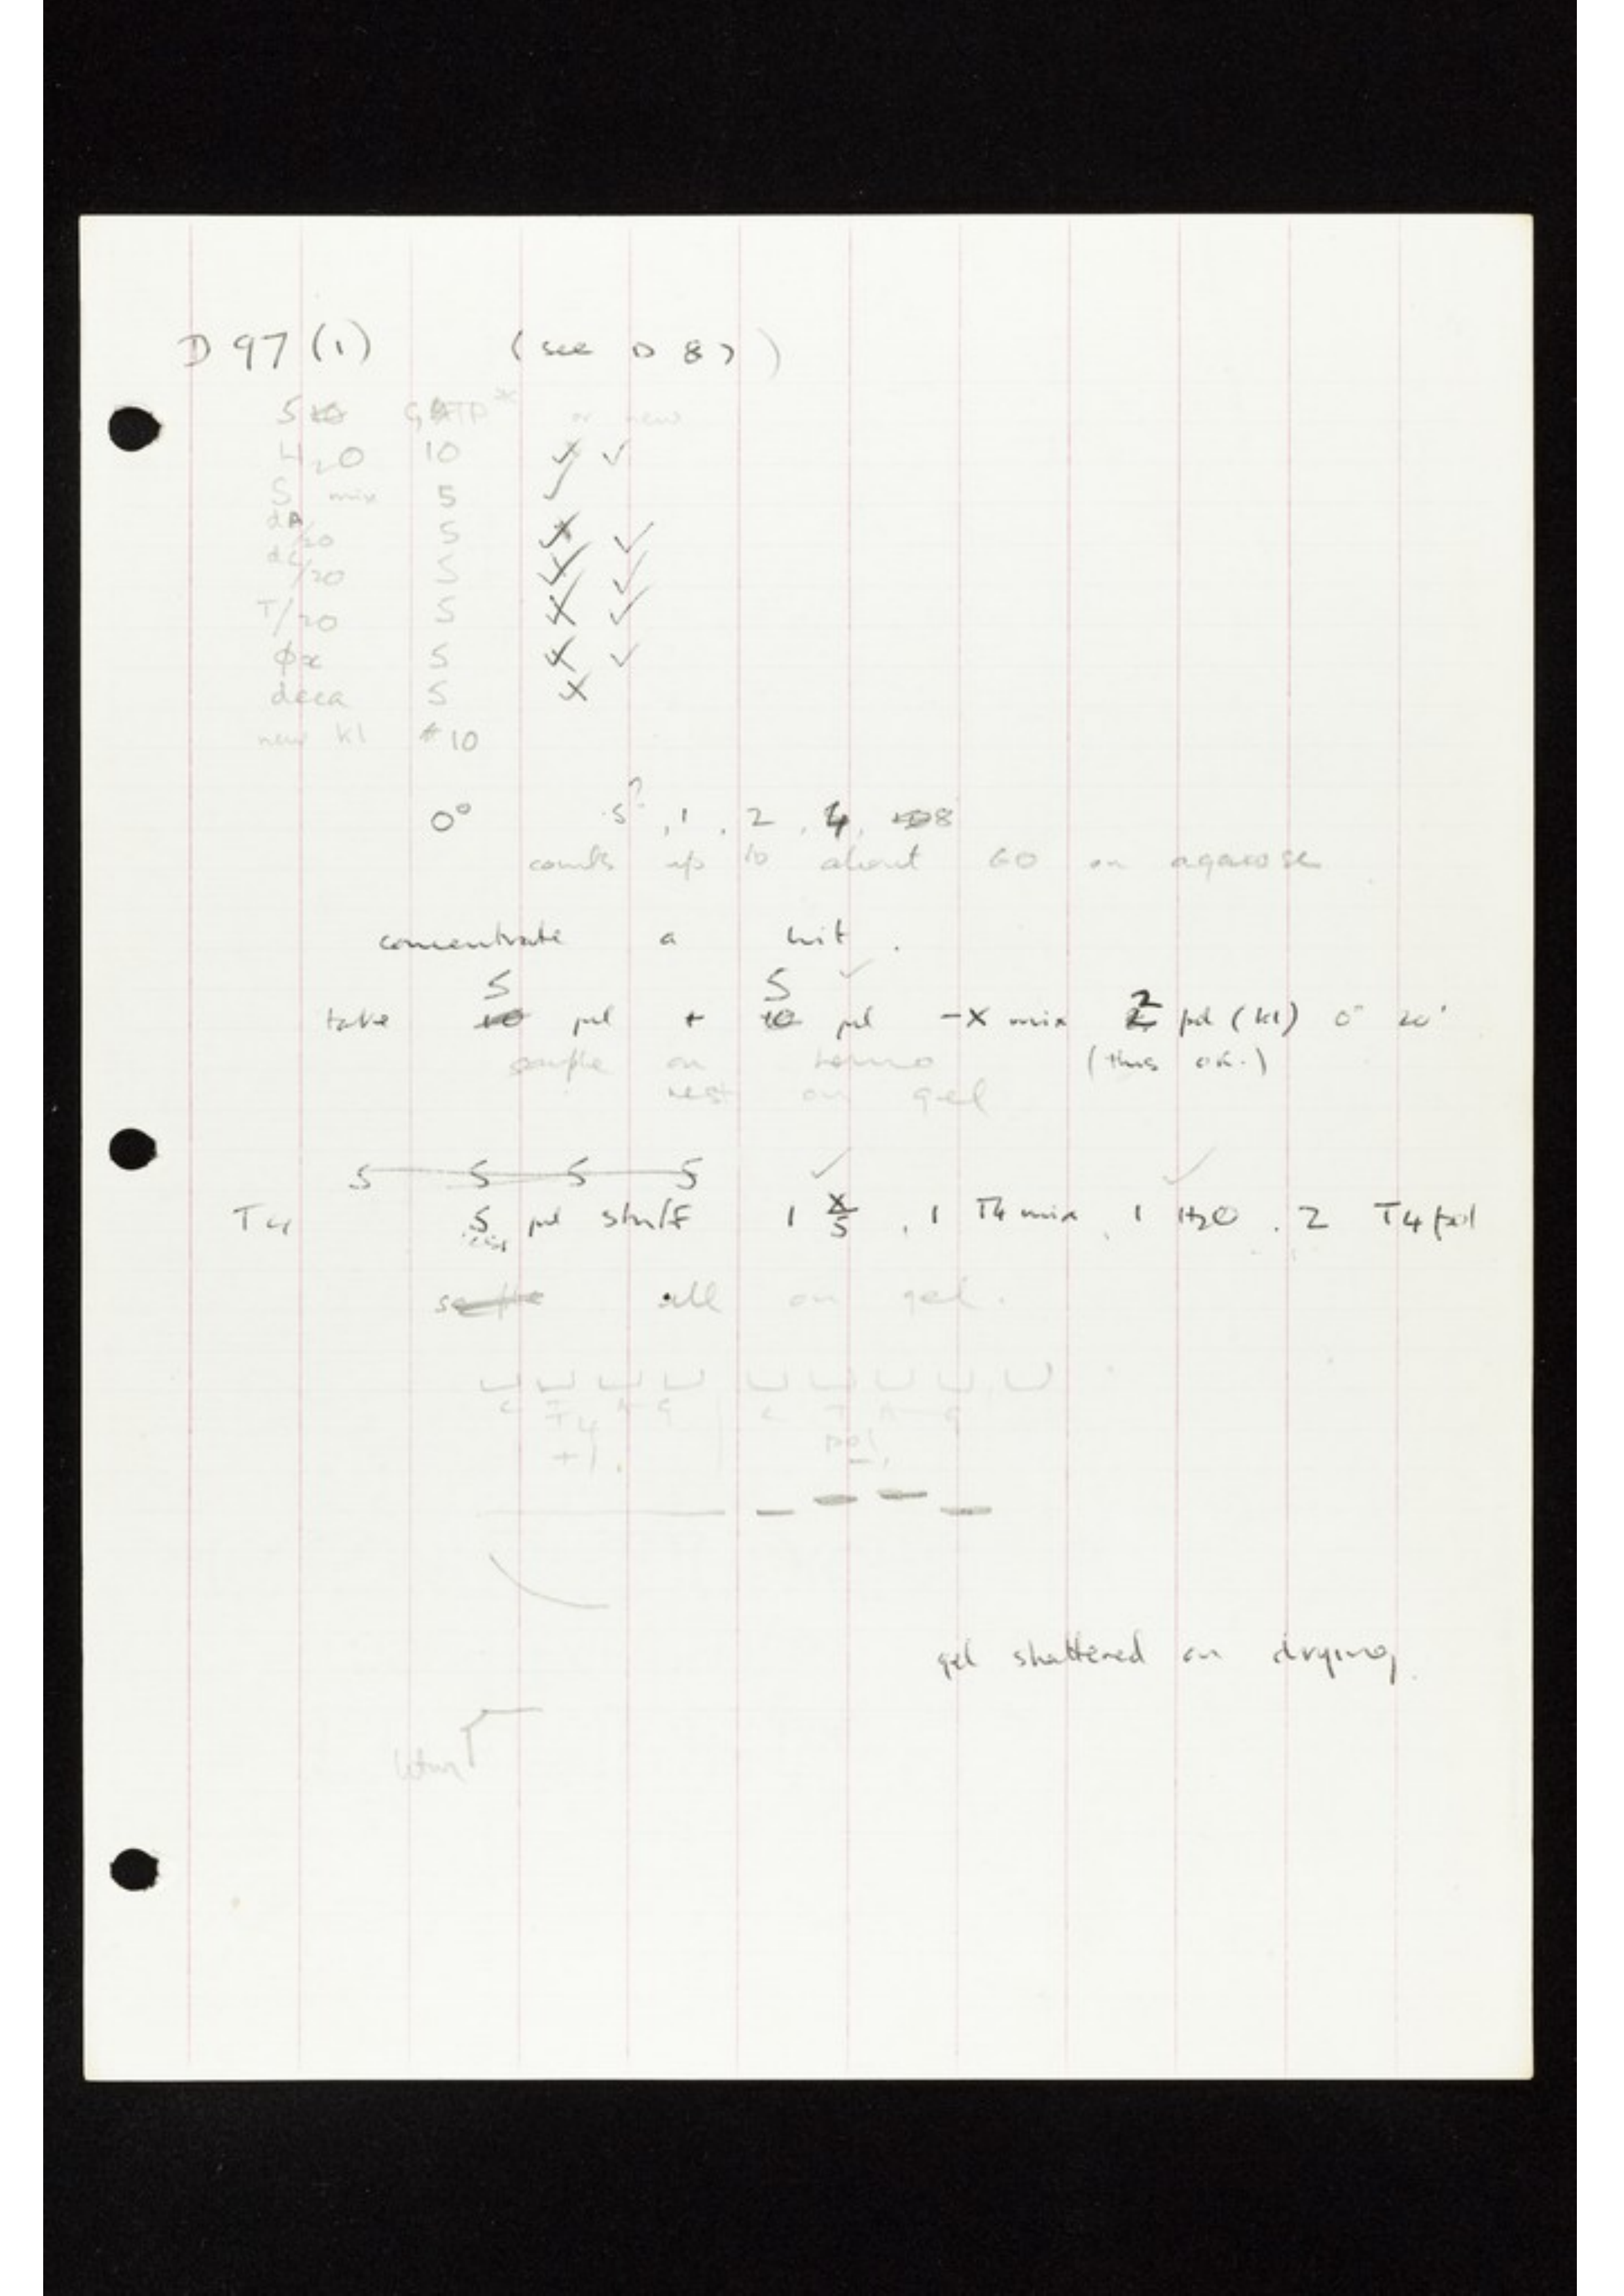 D 97 (1) (see D 87)
5 10 GATP* or new
H2O 10
S mix 5
dA/20 5
dC/20 5
T/20 5
φx 5
deca 5
new Kl 10
0° .5?, 1, 2, 4, 8
counts up to about 60 on agarose
concentrate a bit.
5 5
take 10 µl + 10 µl -X mix 2 µl (Kl) 0° 20'
sample on homo (this ok.)
rest on gel
5 5 5 5
T4 5 µl stuff 1 X/5, 1 T4 mix, 1 H2O, 2 T4 pol
all on gel.
C T A G C T A G
T4 pol
+1.
gel shattered on drying.